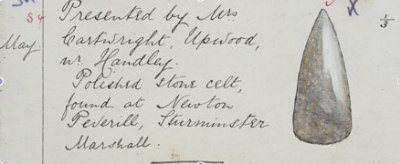 84
Presented by Mrs
May. Cartwright, Upwood,
nr. Handley.
Polished stone celt,
found at Newton
Peverill, Sturminster
Marshall.
X
1/3